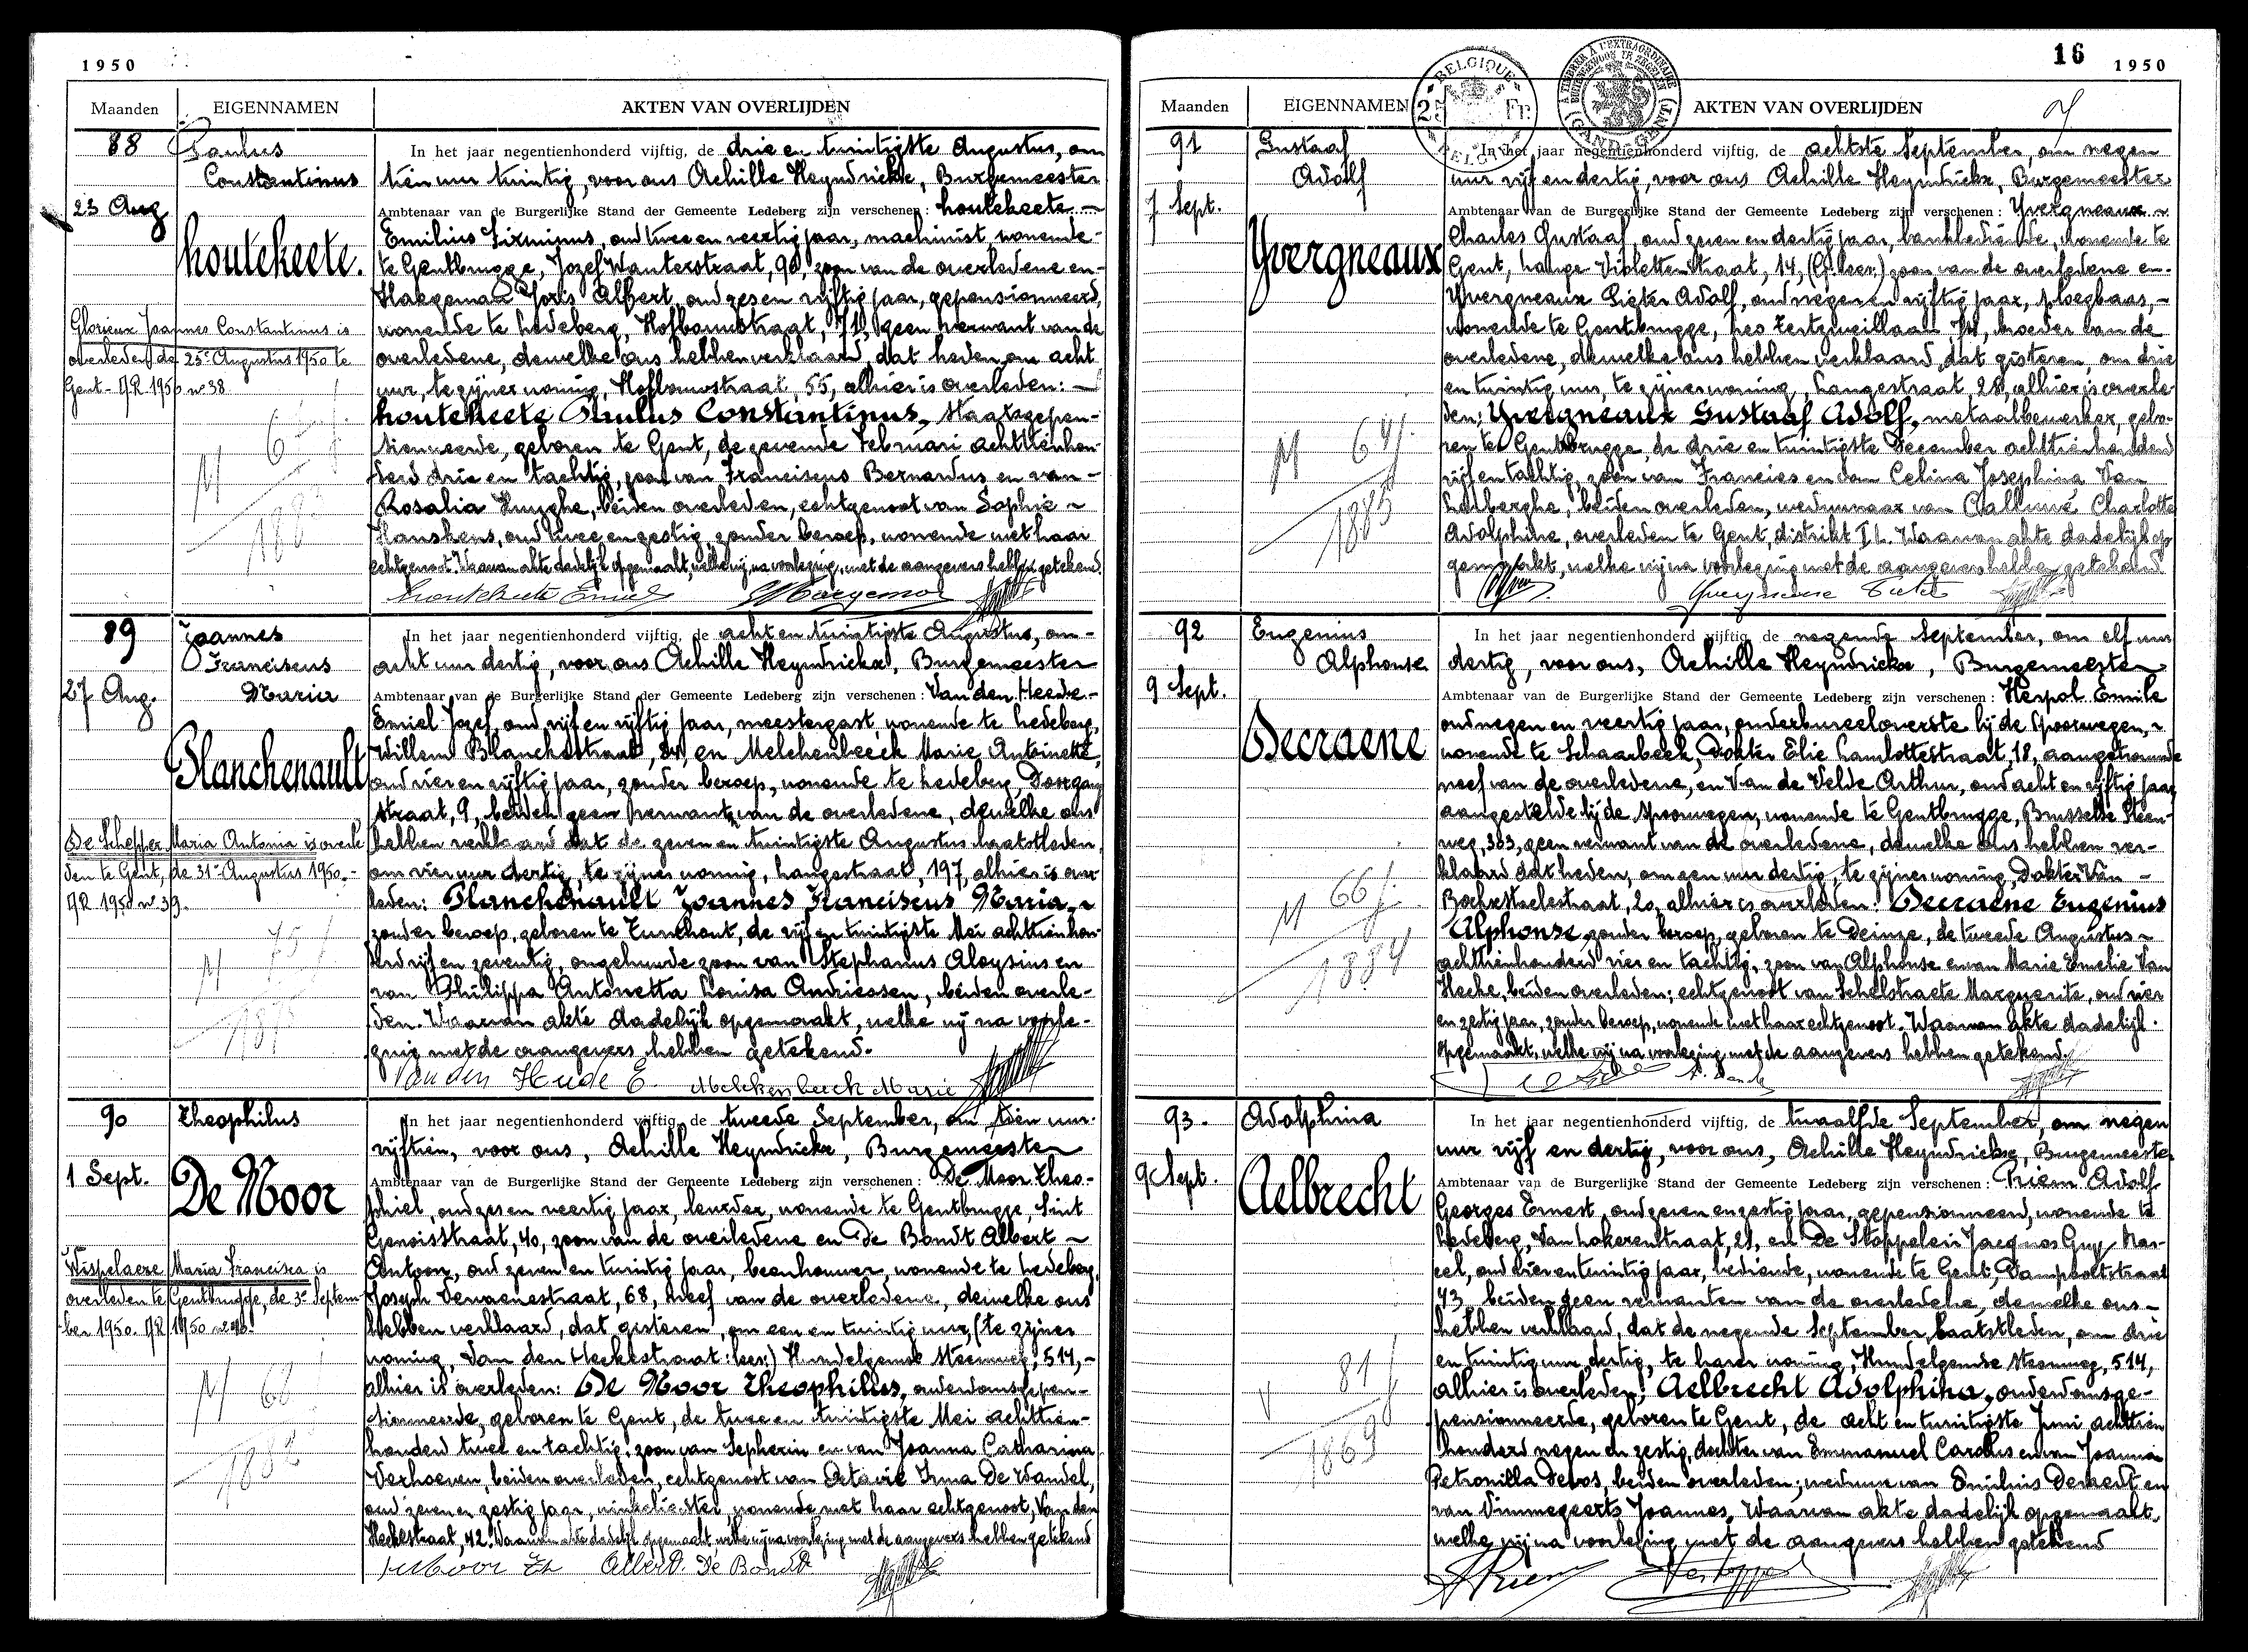 1950
Maanden EIGENNAMEN AKTEN VAN OVERLIJDEN
88
Paulus
Constantinus
23 Aug
houtekeete.
Glorieux Joannes Constantinus is
overleden de 25e Augustus 1950 te
Gent - AR 1950 n° 38
M 67 j.
1883
In het jaar negentienhonderd vijftig, de drie en twintigste Augustus, om
tien uur twintig, voor ons Achille Heyndrickx, Burgemeester
Ambtenaar van de Burgerlijke Stand der Gemeente Ledeberg zijn verschenen: houtekeete
Emilius Firminus, oud twee en veertig jaar, machinist, wonende
te Gentbrugge, Jozef Wauterstraat, 90, zoon van de overledene en
Haegeman Joris Albert, oud zes en vijftig jaar, gepensionneerd,
wonende te Ledeberg, Hofbouwstraat, geen verwant van de
overledene, dewelke ons hebben verklaard, dat heden, om acht
uur, te zijner woning, Hofbouwstraat, 55, alhier is overleden:
houtekeete Paulus Constantinus, Staatsgepen-
sionneerde, geboren te Gent, de zevende Februari achttienhon-
derd drie en tachtig, zoon van Franciscus Bernardus en van
Rosalia Huyghe, beiden overleden, echtgenoot van Sophie
Hanskens, oud twee en zestig, zonder beroep, wonende met haar
echtgenoot. Waarvan akte dadelijk opgemaakt, welke wij, na voorlezing, met de aangevers hebben getekend.
Houtekeete Emiel Haegeman
89
Joannes
Franciscus
Maria
27 Aug.
Planchenault
De Schepper Maria Antonia is overle
den te Gent, de 31e Augustus 1950.-
AR 1950 n° 39.
M 75 j
1875
In het jaar negentienhonderd vijftig, de acht en twintigste Augustus, om
acht uur dertig, voor ons Achille Heyndrickx, Burgemeester
Ambtenaar van de Burgerlijke Stand der Gemeente Ledeberg zijn verschenen: Van den Heede
Emiel Jozef, oud vijf en vijftig jaar, meestergast, wonende te Ledeberg,
Willem Blanckestraat, en Melckenbeeck Marie Antoinette,
oud vier en vijftig jaar, zonder beroep, wonende te Ledeberg, Doorgang
straat, 9, beiden geen verwant van de overledene, dewelke ons
hebben verklaard dat de zeven en twintigste Augustus laatstleden,
om vier uur dertig, te zijner woning, Langestraat, 197, alhier is over
leden: Planchenault Joannes Franciscus Maria,
zonder beroep, geboren te Turnhout, de vijf en twintigste Mei achttienhon-
derd vijf en zeventig, ongehuwde zoon van Stephanus Aloysius en
van Philippa Antonetta Louisa Andriessen, beiden overle-
den. Waarvan akte dadelijk opgemaakt, welke wij na voorle-
zing met de aangevers hebben getekend.
Van den Heede E. Melckenbeeck Marie
90
Theophilus
1 Sept.
De Moor
Wispelaere Maria Francisca is
overleden te Gentbrugge, de 3e Septem-
ber 1950. AR 1950
M 68 j
1882
In het jaar negentienhonderd vijftig, de tweede September, om tien uur
vijftien, voor ons, Achille Heyndrickx, Burgemeester
Ambtenaar van de Burgerlijke Stand der Gemeente Ledeberg zijn verschenen: De Moor Theo-
phiel, oud zes en veertig jaar, leurder, wonende te Gentbrugge, Sint
Genoisstraat, 40, zoon van de overledene en De Bondt Albert
Antoon, oud zeven en twintig jaar, beenhouwer, wonende te Ledeberg,
Joseph Vervaenestraat, 68, neef van de overledene, dewelke ons
hebben verklaard, dat gisteren, om een en twintig uur, (te zijner
woning, Van den Heckestraat: lees:) Hundelgemse steenweg, 514,
alhier is overleden: De Moor Theophilus, ouderdomsgepen-
sionneerde, geboren te Gent, de twee en twintigste Mei achttien-
honderd twee en tachtig, zoon van Sepherin en van Joanna Catharina
Verhoeven, beiden overleden, echtgenoot van Octavie Irma De Wandel,
oud zeven en zestig jaar, winkelierster, wonende met haar echtgenoot, Van den
Heckestraat, 42. Waarvan akte dadelijk opgemaakt, welke wij na voorlezing met de aangevers hebben getekend
De Moor Th Albert De Bondt
16
1950
BELGIQUE
25 Fr.
BELGIË
Maanden EIGENNAMEN AKTEN VAN OVERLIJDEN
91
Gustaaf
Adolf
7 Sept.
Yvergneaux
M 64 j.
1885
In het jaar negentienhonderd vijftig, de achtste September, om negen
uur vijf en dertig, voor ons Achille Heyndrickx, Burgemeester
Ambtenaar van de Burgerlijke Stand der Gemeente Ledeberg zijn verschenen: Yvergneaux
Charles Gustaaf, oud zeven en dertig jaar, bankbediende, wonende te
Gent, Lange Violettenstraat, 14, zoon van de overledene en
Yvergneaux Pieter Adolf, oud negen en vijftig jaar, ploegbaas,
wonende te Gentbrugge, Leo Tertzweillaan, broeder van de
overledene, dewelke ons hebben verklaard, dat gisteren, om drie
en twintig uur, te zijner woning, Langestraat, 28, alhier is overle-
den: Yvergneaux Gustaaf Adolf, metaalbewerker, gebo-
ren te Gentbrugge, de drie en twintigste December achttienhonderd
vijf en tachtig, zoon van Francies en van Celina Josephina Van
Larberghe, beiden overleden, weduwnaar van Charlotte
Adolphine, overleden te Gent, distrikt I L. Waarvan akte dadelijk op
gemaakt, welke wij na voorlezing met de aangevers hebben getekend
92
Eugenius
Alphonse
9 Sept.
Decraene
M 66 j.
1884
In het jaar negentienhonderd vijftig, de negende September, om elf uur
dertig, voor ons, Achille Heyndrickx, Burgemeester
Ambtenaar van de Burgerlijke Stand der Gemeente Ledeberg zijn verschenen: Herpol Emile
oud negen en veertig jaar, onderbureeloverste bij de Spoorwegen,
wonende te Schaarbeek, Dokter Elie Lambottestraat, 18, aangetrouwde
neef van de overledene, en Van de Velde Arthur, oud acht en vijftig jaar
aangestelde bij de spoorwegen, wonende te Gentbrugge, Brusselse Steen-
weg, 303, geen verwant van de overledene, dewelke ons hebben ver-
klaard dat heden, om een uur dertig, te zijner woning, Dokter Van
Bockxstaelestraat, 20, alhier is overleden: Decraene Eugenius
Alphonse, zonder beroep, geboren te Deinze, de tweede Augustus
achttienhonderd vier en tachtig, zoon van Alphonse en van Marie Emelie Van
Hecke, beiden overleden; echtgenoot van Schelstraete Marguerite, oud vier
en zestig jaar, zonder beroep, wonende met haar echtgenoot. Waarvan akte dadelijk
opgemaakt, welke wij na voorlezing met de aangevers hebben getekend.
93.
Adolphina
9 Sept.
Aelbrecht
V 81 j
1869
In het jaar negentienhonderd vijftig, de twaalfde September, om negen
uur vijf en dertig, voor ons, Achille Heyndrickx, Burgemeester
Ambtenaar van de Burgerlijke Stand der Gemeente Ledeberg zijn verschenen: Priem Adolf
Georges Ernest, oud zeven en zestig jaar, gepensionneerd, wonende te
Ledeberg, Van Lokerenstraat, 21, en De Stoppelein Jacques Guy Mar-
cel, oud vier en twintig jaar, bediende, wonende te Gent, Dampoortstraat
43, beiden geen verwanten van de overledene, dewelke ons
hebben verklaard, dat de negende September laatstleden, om drie
en twintig uur dertig, te harer woning, Hundelgemse steenweg, 514,
alhier is overleden: Aelbrecht Adolphina, ouderdomsge-
pensionneerde, geboren te Gent, de acht en twintigste Juni achttien
honderd negen en zestig, dochter van Emmanuel Carolus en van Joanna
Petronilla Devos, beiden overleden; weduwe van Emilius Demedt en
van Vimmegeerts Joannes. Waarvan akte dadelijk opgemaakt,
welke wij na voorlezing met de aangevers hebben getekend